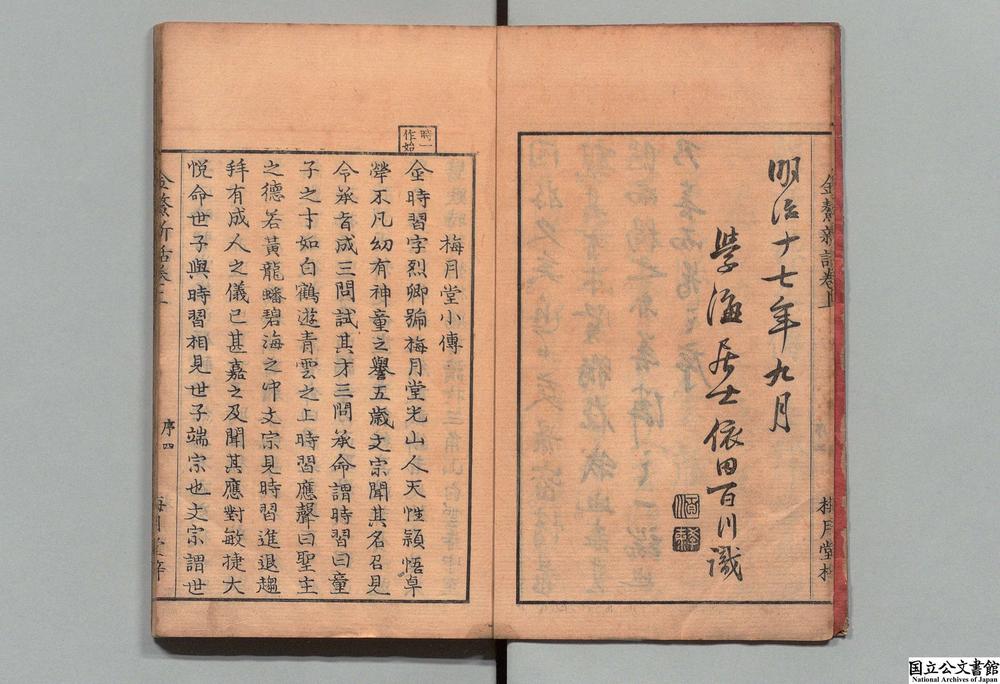 金鰲新話卷上
明治十七年九月
學海居士依田百川識
梅月堂梓
時一
作始
梅月堂小傳
金時習字烈卿號梅月堂光山人天性穎悟卓
犖不凡幼有神童之譽五歲文宗聞其名召見
令承旨成三問試其才三問承命謂時習曰童
子之才如白鶴遊青雲之上時習應聲曰聖主
之德若黃龍蟠碧海之中文宗見時習進退趨
拜有成人之儀已甚嘉之及聞其應對敏捷大
悅命世子與時習相見世子端宗也文宗謂世
金鰲新話卷上
序四
梅月堂梓
国立公文書館
National Archives of Japan